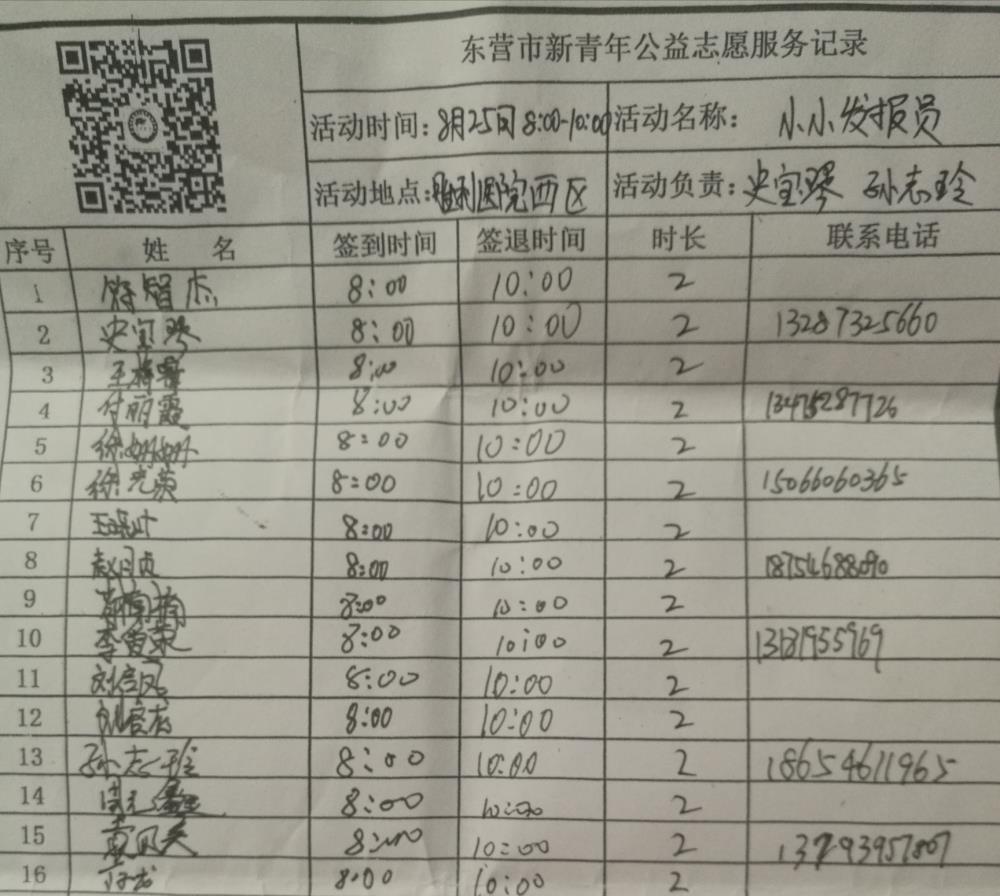 东营市新青年公益志愿服务记录
活动时间：8月25日8:00-10:00 活动名称： 小小发报员
活动地点：胜利医院西区 活动负责：史宝琴 孙志玲
序号 姓 名 签到时间 签退时间 时长 联系电话
1 智杰 8:00 10:00 2
2 史宝琴 8:00 10:00 2 13287325660
3 王 8:00 10:00 2
4 付丽霞 8:00 10:00 2 13475287726
5 徐姗姗 8:00 10:00 2
6 徐光荣 8:00 10:00 2 15066060365
7 王 8:00 10:00 2
8 赵月贞 8:00 10:00 2 18754688090
9 8:00 10:00 2
10 李雪荣 8:00 10:00 2 13181955969
11 刘 8:00 10:00 2
12 刘 8:00 10:00 2
13 孙志玲 8:00 10:00 2 18654611965
14 8:00 10:00 2
15 董 8:00 10:00 2
16 8:00 10:00 2